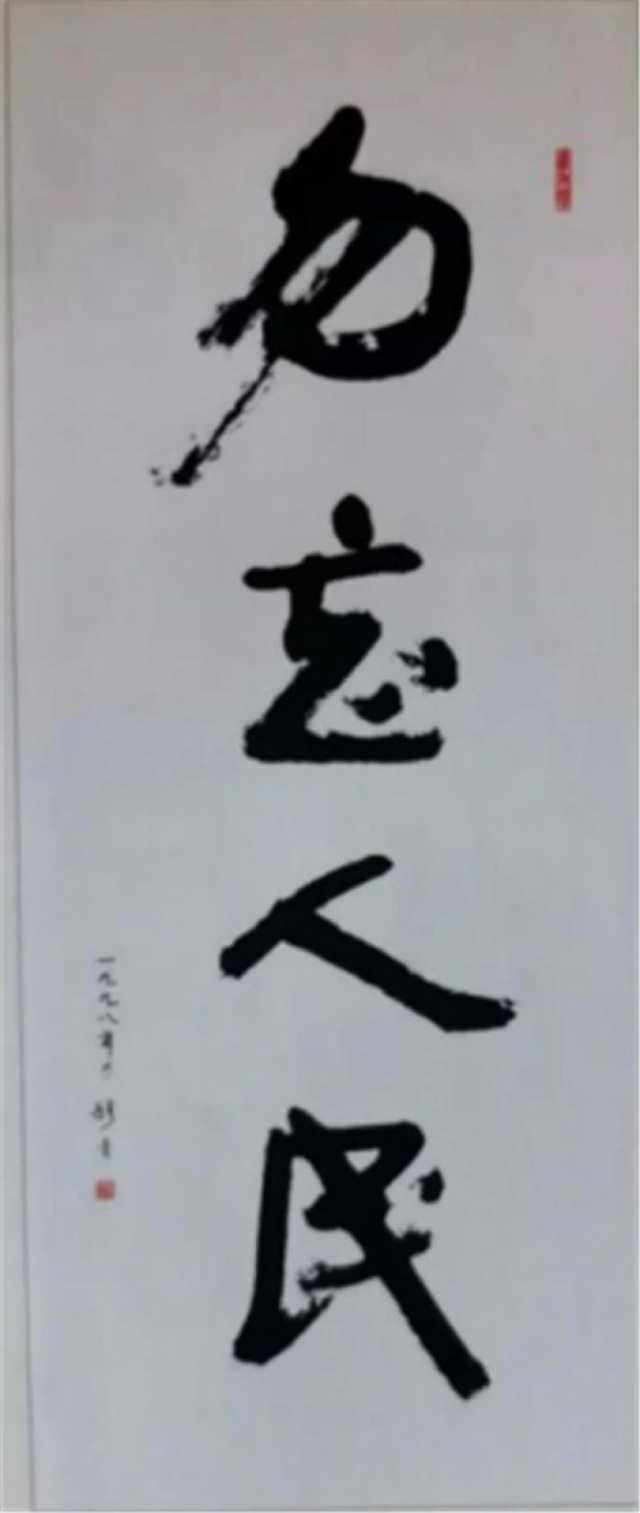 勿忘人民
一九九八年